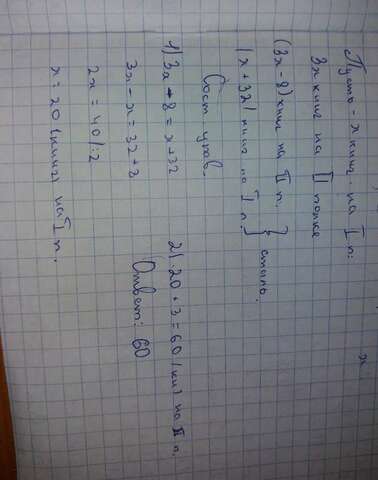 Пусть - x книг. на I п.
3x книг на II полке
(3x-8) книг на II п. } стало.
(x+32) книг на I п.
Сост. урав.
1) 3x-8=x+32
3x-x=32+8
2x=40|:2
x=20 (книг) на I п.
2) 20·3=60 (книг) на II п.
Ответ: 60